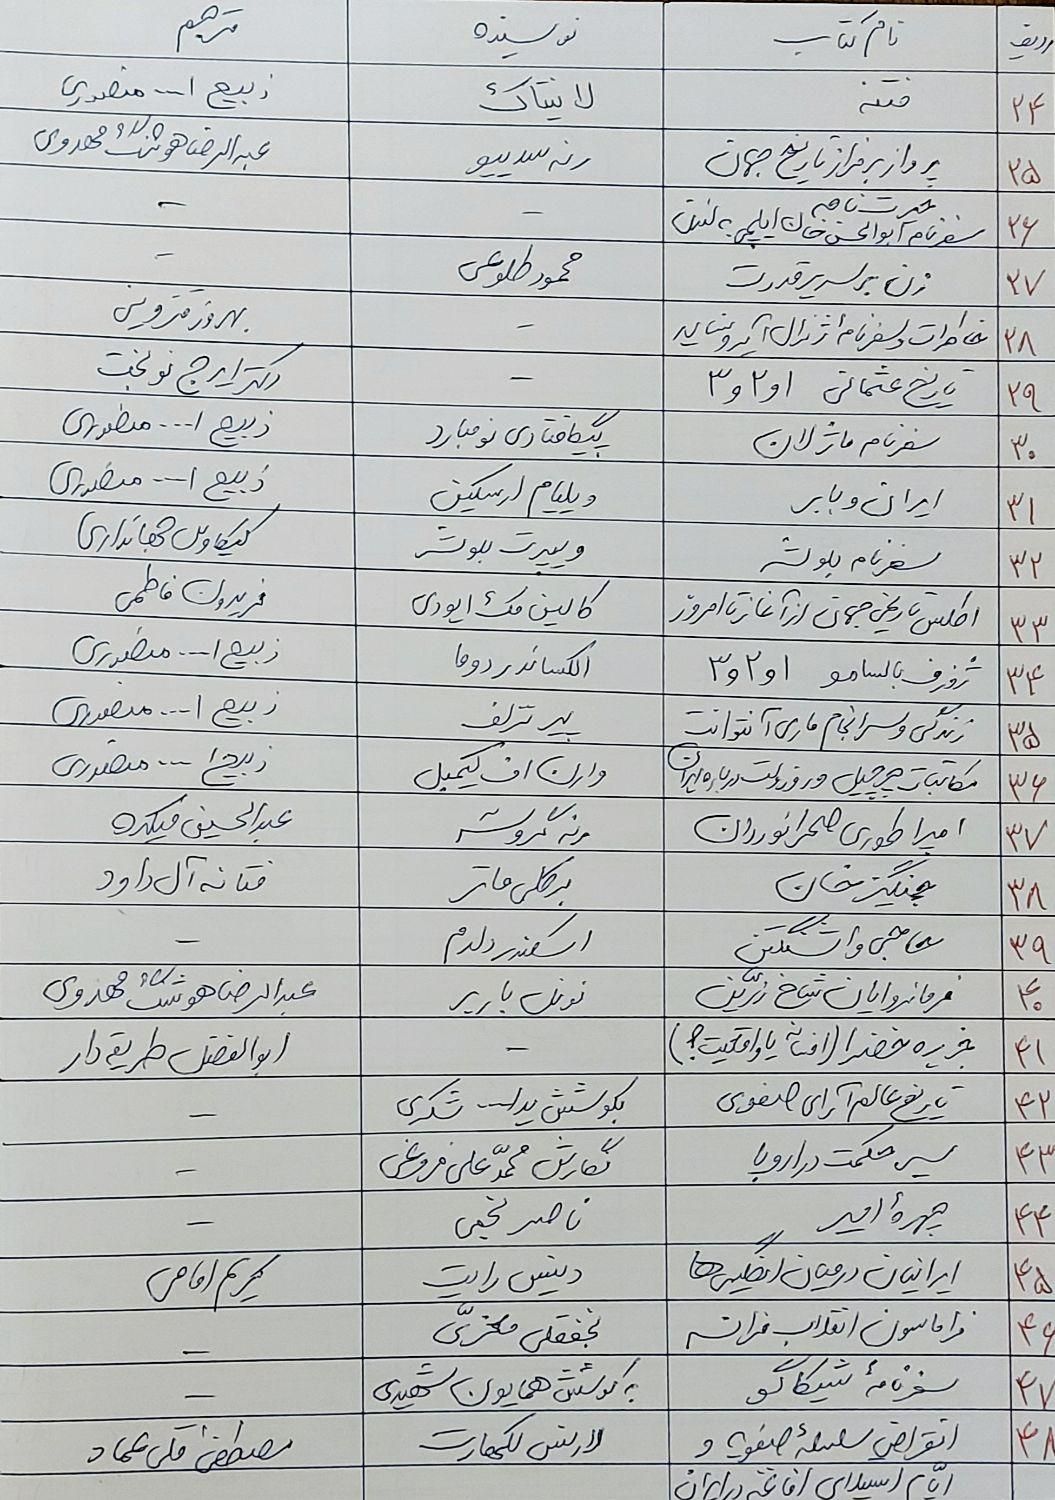 ردیف نام کتاب نویسنده مترجم
۲۴ فتنه لانیتاک ذبیح ا... منصوری
۲۵ پرواز بر فراز تاریخ جهان رنه سدییو عبدالرضا هوشنگ مهدوی
۲۶ حیرت نامه سفرنامه ابوالحسن خان ایلچی به لندن - -
۲۷ زن بر سریر قدرت محمود طلوعی -
۲۸ خاطرات و سفرنامه ژنرال آیرونساید - بهروز قزوینی
۲۹ تاریخ عثمانی ۱و۲و۳ - دکتر ایرج نوبخت
۳۰ سفرنامه ماژلان پیگافتادی نومبارد ذبیح ا... منصوری
۳۱ ایران و بابر ویلیام ارسکین ذبیح ا... منصوری
۳۲ سفرنامه بلوشه ویپرت بلوشر کیکاوس جهانداری
۳۳ اطلس تاریخی جهان از آغاز تا امروز کالین مک ایودی فریدون فاطمی
۳۴ ژوزف بالسامو ۱و۲و۳ الکساندر دوما ذبیح ا... منصوری
۳۵ زندگی و سرانجام ماری آنتوانت پیر نزلف ذبیح ا... منصوری
۳۶ مکاتبات چرچیل و روزولت درباره ایران وارن اف کیمبل ذبیح ا... منصوری
۳۷ امپراطوری صحرانوردان رنه گروسه عبدالحسین میکده
۳۸ چنگیز خان برکلی ماتر فتانه آل داود
۳۹ حاجی واشنگتن اسکندر دلدم -
۴۰ فرمانروایان شاخ زرین نوئل باربر عبدالرضا هوشنگ مهدوی
۴۱ جزیره خضرا (افسانه یا واقعیت؟) - ابوالفضل طریقه دار
۴۲ تاریخ عالم آرای صفوی بکوشش یدا... شکری -
۴۳ سیر حکمت در اروپا نگارش محمّد علی فروغی -
۴۴ چهرۀ امیر ناصر نجمی -
۴۵ ایرانیان در میان انگلیسی‌ها دنیس رایت کریم امامی
۴۶ فراماسون انقلاب فرانسه نجفقلی معزّی -
۴۷ سفرنامۀ شیکاگو به کوشش همایون شهیدی -
۴۸ انقراض سلسلۀ صفویه و لارنس لکهارت مصطفی قلی عماد
ایّام استیلای افاغنه در ایران